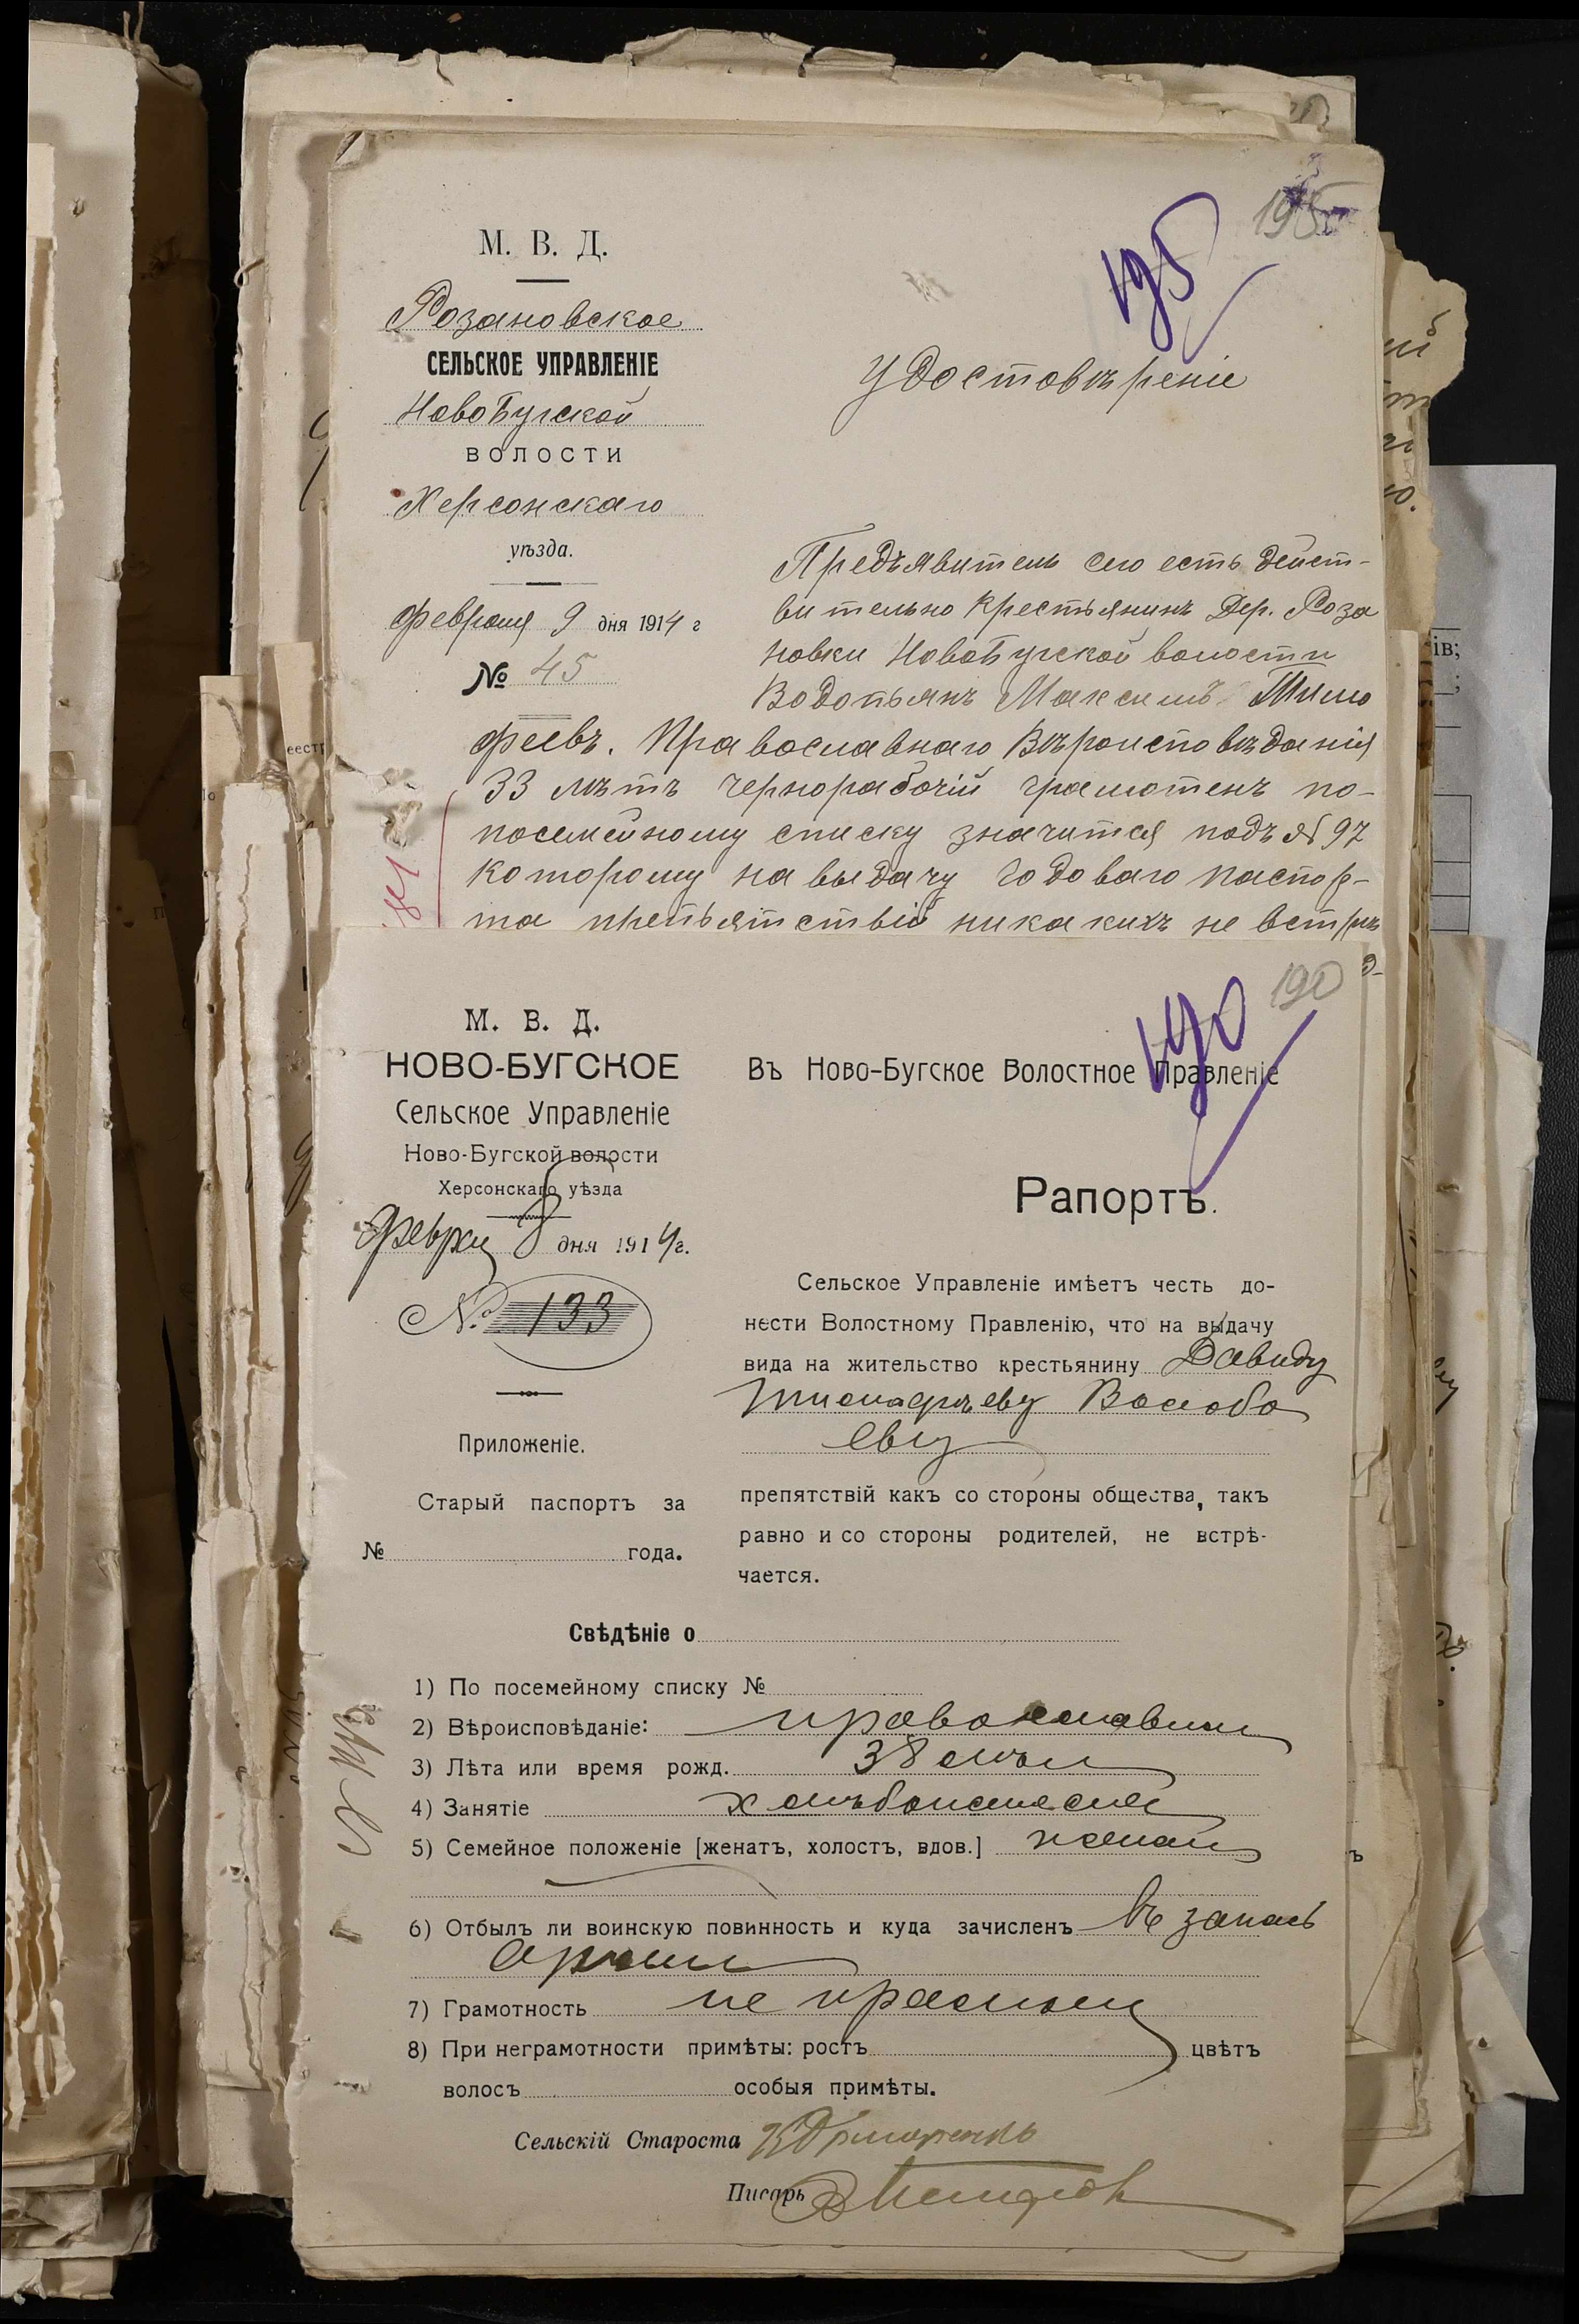 195
195
М. В. Д.
Розановское
СЕЛЬСКОЕ УПРАВЛЕНІЕ
НовоБугской
ВОЛОСТИ
Херсонскаго
уѣзда.
Февраля 9 дня 1914 г
№ 45
Удостовѣреніе
Предъявитель сего есть дейст-
вительно крестьянинъ дер. Роза
новки НовоБугской волости
Водопьянъ Максимъ Тимо
феевъ. Православнаго Вѣроисповѣданія
33 лѣтъ чернорабочій грамотенъ по-
посемейному списку значится подъ № 97
которому на выдачу годоваго паспор-
та препьятствій никакихъ не встрѣ
190
190
М. В. Д.
НОВО-БУГСКОЕ
Сельское Управленіе
Ново-Бугской волости
Херсонскаго уѣзда
Февра 8 дня 1914 г.
№ 133
Приложеніе.
Старый паспортъ за
№ года.
Въ Ново-Бугское Волостное Правленіе
Рапортъ.
Сельское Управленіе имѣетъ честь до-
нести Волостному Правленію, что на выдачу
вида на жительство крестьянину Давиду
Тимофѣеву Волобо
еву
препятствій какъ со стороны общества, такъ
равно и со стороны родителей, не встрѣ-
чается.
Свѣдѣніе о
1) По посемейному списку №
2) Вѣроисповѣданіе: православный
3) Лѣта или время рожд. 38 лѣтъ
4) Занятіе хлѣбопашество
5) Семейное положеніе [женатъ, холостъ, вдов.] женатъ
6) Отбылъ ли воинскую повинность и куда зачисленъ въ запась
арміи
7) Грамотность не
8) При неграмотности примѣты: ростъ цвѣтъ
волосъ особыя примѣты.
Сельскій Староста
Писарь